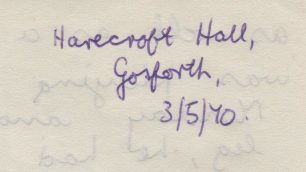 Harecroft Hall,
Gosforth,
3/5/40.